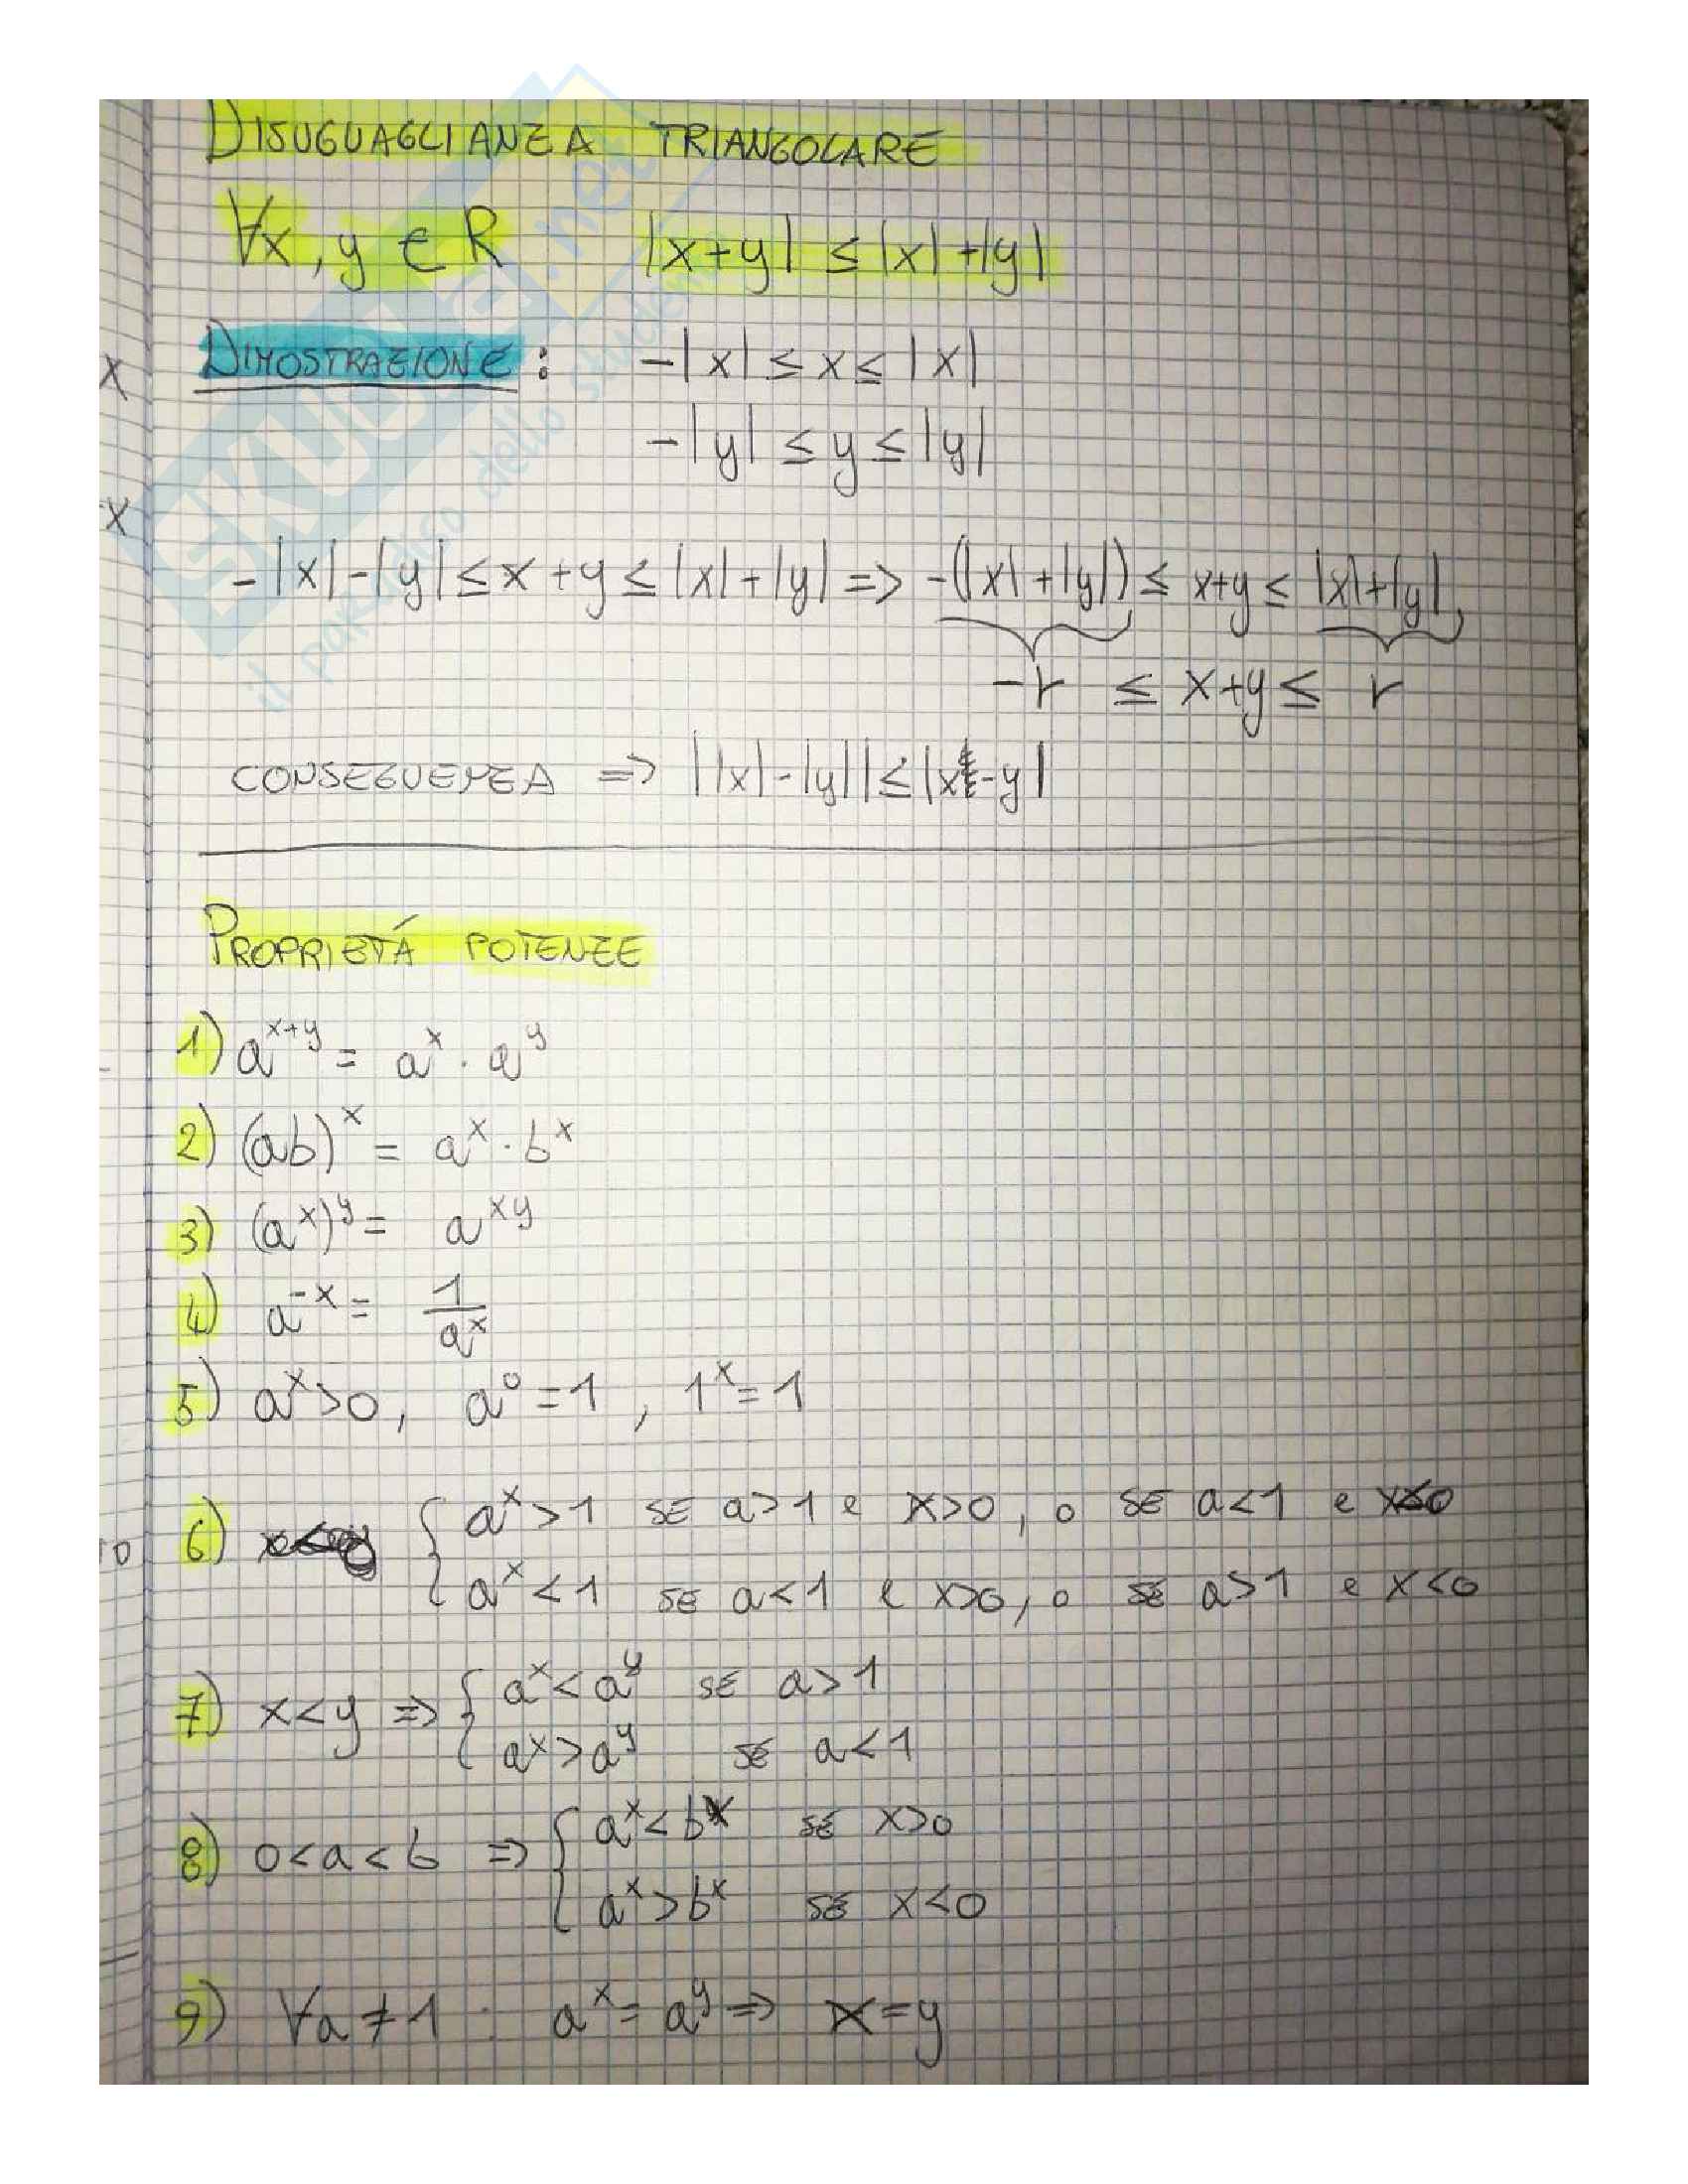 DISUGUAGLIANZA TRIANGOLARE
∀x, y ∈ R |x+y| ≤ |x|+|y|
DIMOSTRAZIONE: -|x| ≤ x ≤ |x|
-|y| ≤ y ≤ |y|
-|x|-|y| ≤ x+y ≤ |x|+|y| => -(|x|+|y|) ≤ x+y ≤ |x|+|y|
-r ≤ x+y ≤ r
CONSEGUENZA => ||x|-|y|| ≤ |x-y|
PROPRIETÁ POTENZE
1) a^{x+y} = a^x · a^y
2) (ab)^x = a^x · b^x
3) (a^x)^y = a^{xy}
4) a^{-x} = 1/a^x
5) a^x>0, a^0=1, 1^x=1
6) { a^x>1 SE a>1 e x>0, o SE a<1 e x<0
a^x<1 SE a<1 e x>0, o SE a>1 e x<0
7) x<y => { a^x<a^y SE a>1
a^x>a^y SE a<1
8) 0<a<b => { a^x<b^x SE x>0
a^x>b^x SE x<0
9) ∀a≠1 : a^x=a^y => x=y
x
x
SKUOLA.net
il paradiso dello studente